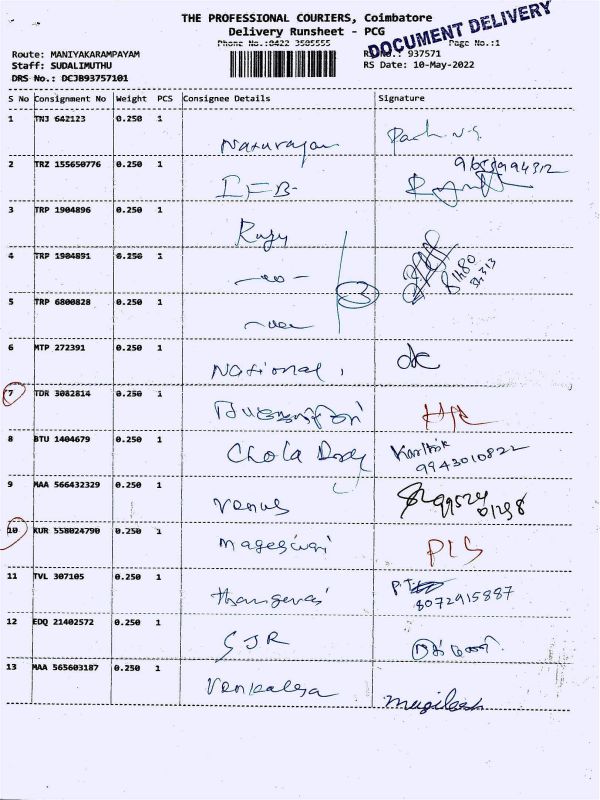 THE PROFESSIONAL COURIERS, Coimbatore
Delivery Runsheet - PCG
Phone No.:0422 3505555
Page No.:1
DOCUMENT DELIVERY
Route: MANIYAKARAMPAYAM
RS No.: 937571
Staff: SUDALIMUTHU
RS Date: 10-May-2022
DRS No.: DCJB93757101
S No Consignment No Weight PCS Consignee Details Signature
1 TNJ 642123 0.250 1
Natarajan
2 TRZ 155650776 0.250 1
I F B-
3 TRP 1904896 0.250 1
Raju
4 TRP 1904891 0.250 1
5 TRP 6800828 0.250 1
3
6 MTP 272391 0.250 1
National dc
7 TDR 3082814 0.250 1
8 BTU 1404679 0.250 1
Chola Karthik
9943010822
9 MAA 566432329 0.250 1
Venus
10 KUR 558024790 0.250 1
Mageswari
11 TVL 307105 0.250 1
Thangaraj 8072915887
12 EDQ 21402572 0.250 1
SJR
13 MAA 565603187 0.250 1
Venkatesa Mugilesh